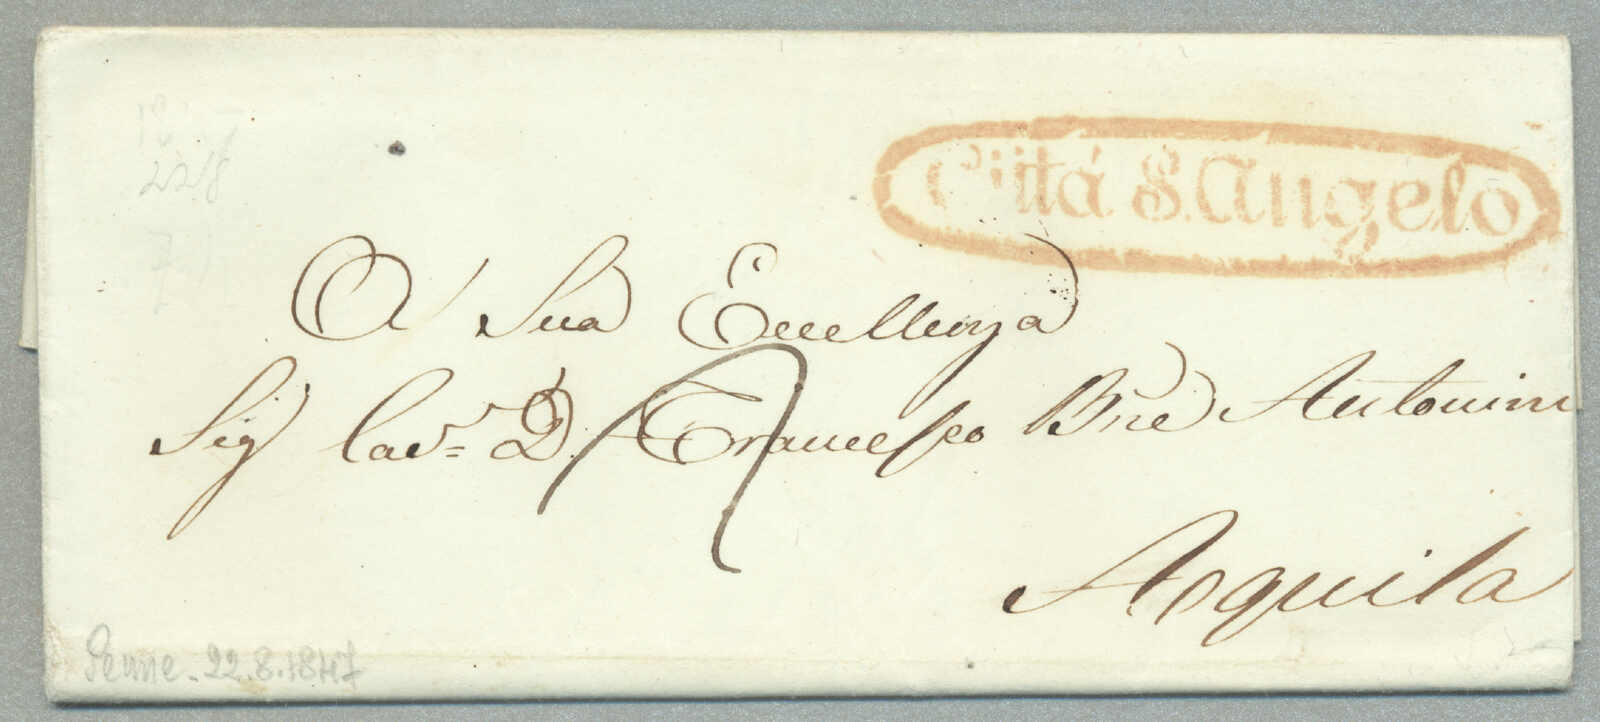 Città S. Angelo
A Sua Eccellenza
Sig Cav.= D. Francesco Bne Antonini
Aquila
Penne - 22.8.1847
22/8